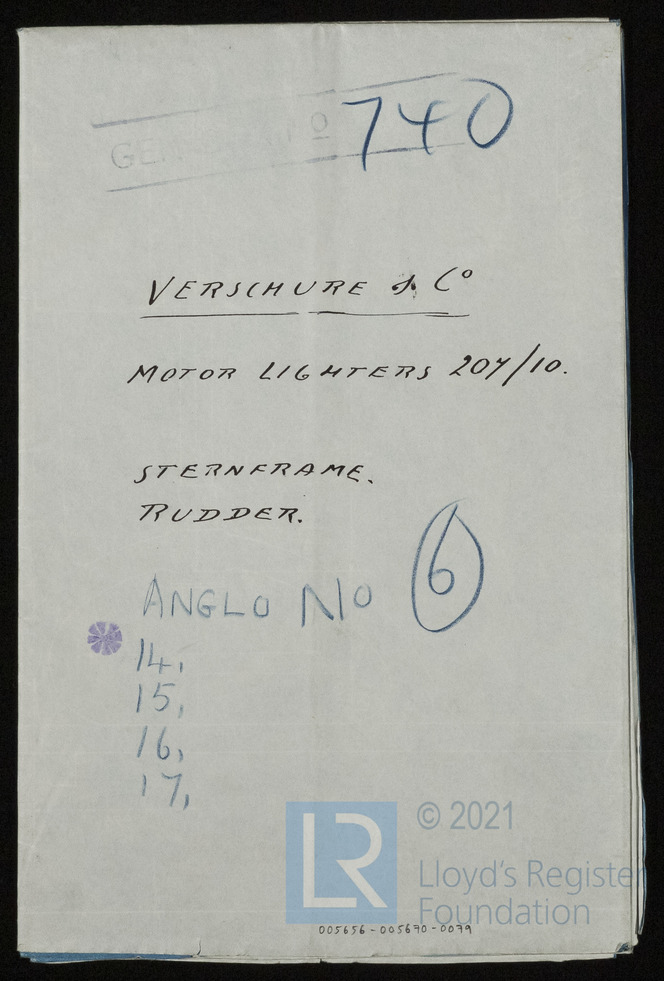 740
VERSCHURE & Co
MOTOR LIGHTERS 207/10.
STERNFRAME.
RUDDER.
6
ANGLO No
14,
15,
16,
17,
LR
© 2021
Lloyd's Register
Foundation
005656-005670-0079